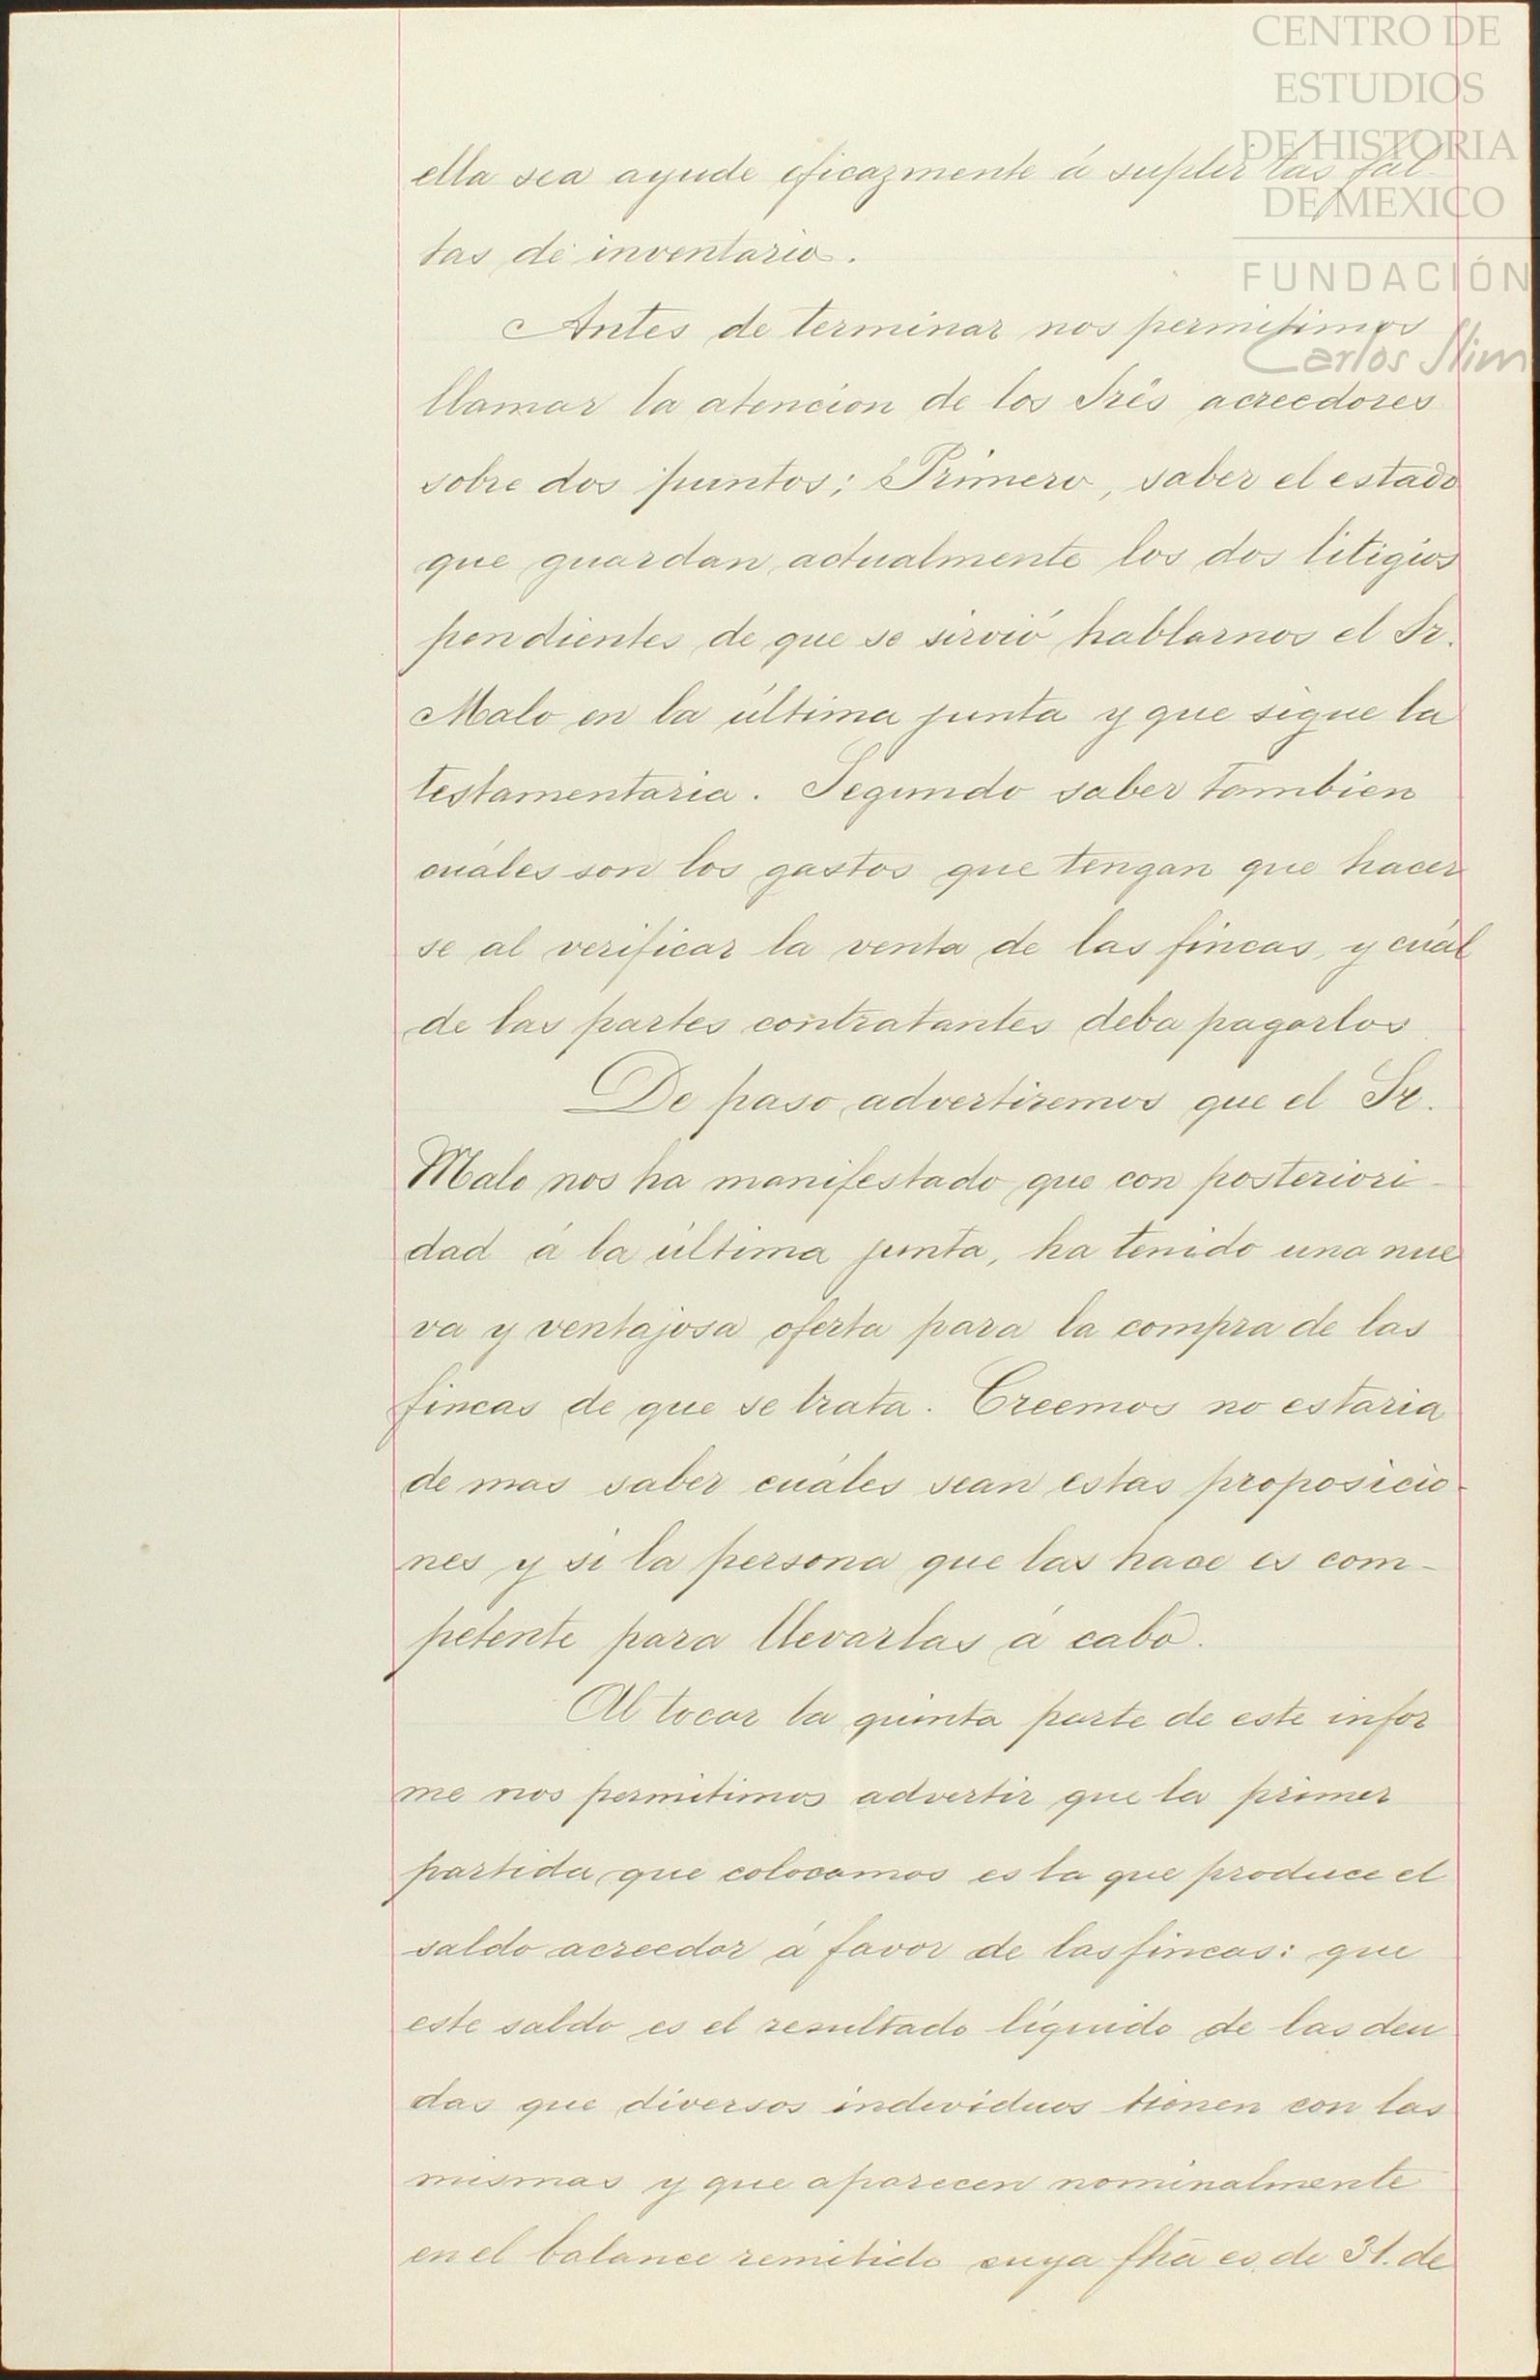 CENTRO DE
ESTUDIOS
DE HISTORIA
DE MEXICO
FUNDACIÓN
Carlos Slim
ella sea ayude eficazmente á suplir las fal
tas de inventario.
Antes de terminar nos permitimos
llamar la atencion de los Srēs acreedores
sobre dos puntos; Primero, saber el estado
que guardan actualmente los dos litigios
pendientes de que se sirvió hablarnos el Sr.
Malo en la última junta y que sigue la
testamentaria. Segundo saber tambien
cuáles son los gastos que tengan que hacer
se al verificar la venta de las fincas, y cuál
de las partes contratantes deba pagarlos
De paso advertiremos que el Sr.
Malo nos ha manifestado que con posteriori-
dad á la última junta, ha tenido una nue
va y ventajosa oferta para la compra de las
fincas de que se trata. Creemos no estaria
de mas saber cuáles sean estas proposicio-
nes y si la persona que las hace es com-
petente para llevarlas á cabo.
Al tocar la quinta parte de este infor
me nos permitimos advertir que la primer
partida que colocamos es la que produce el
saldo acreedor á favor de las fincas: que
este saldo es el resultado líquido de las deu
das que diversos individuos tienen con las
mismas y que aparecen nominalmente
en el balance remitido cuya fhā es de 31. de